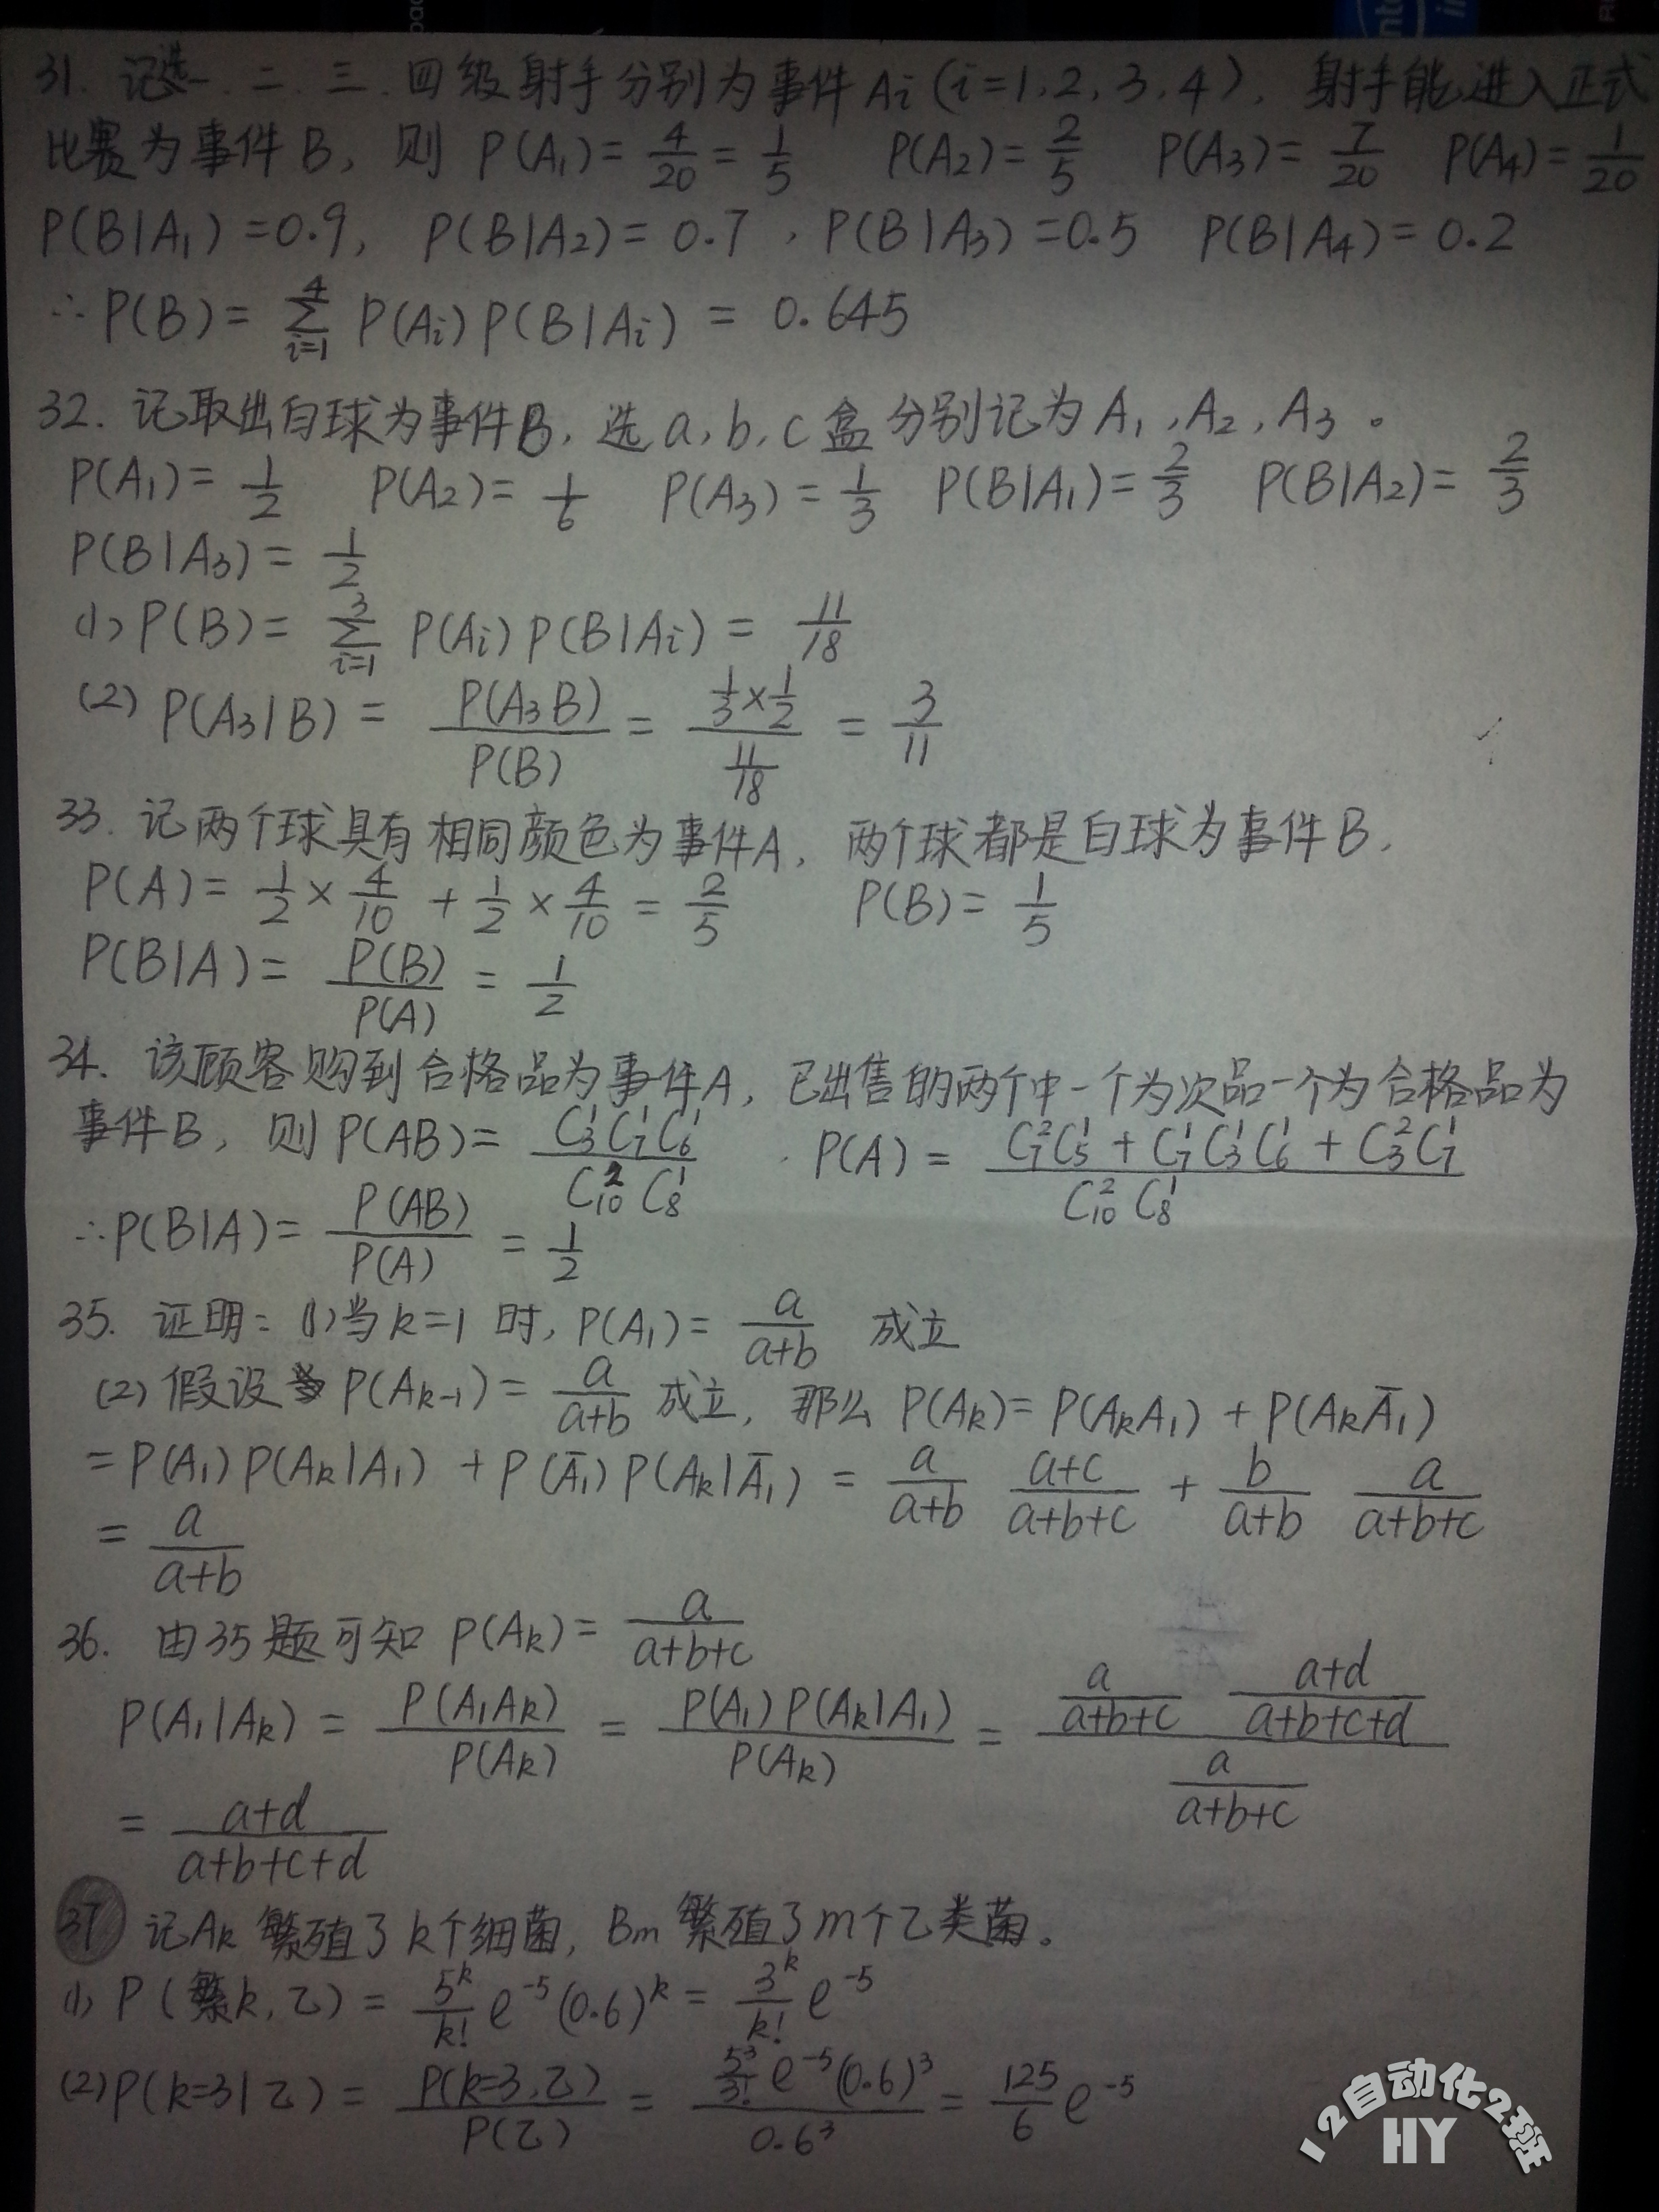 31. 记选一.二.三.四级射手分别为事件Ai(i=1,2,3,4), 射手能进入正式
比赛为事件B, 则 P(A₁)=4/20=1/5 P(A₂)=2/5 P(A₃)=7/20 P(A₄)=1/20
P(B|A₁)=0.9, P(B|A₂)=0.7, P(B|A₃)=0.5 P(B|A₄)=0.2
∴P(B)=∑_{i=1}^{4} P(Ai)P(B|Ai) = 0.645
32. 记取出白球为事件B, 选a,b,c盒分别记为A₁,A₂,A₃。
P(A₁)=1/2 P(A₂)=1/6 P(A₃)=1/3 P(B|A₁)=2/3 P(B|A₂)=2/3
P(B|A₃)=1/2
(1)P(B)=∑_{i=1}^{3} P(Ai)P(B|Ai)=11/18
(2) P(A₃|B)=P(A₃B)/P(B)=(1/3×1/2)/(11/18)=3/11
33. 记两个球具有相同颜色为事件A, 两个球都是白球为事件B,
P(A)=1/2×4/10+1/2×4/10=2/5 P(B)=1/5
P(B|A)=P(B)/P(A)=1/2
34. 该顾客购到合格品为事件A, 已出售的两个中一个为次品一个为合格品为
事件B, 则P(AB)=C₃¹C₇¹C₆¹/C₁₀²C₈¹ . P(A)=(C₇²C₅¹+C₇¹C₃¹C₆¹+C₃²C₇¹)/C₁₀²C₈¹
∴P(B|A)=P(AB)/P(A)=1/2
35. 证明: (1)当k=1时, P(A₁)=a/(a+b) 成立
(2)假设P(A_{k-1})=a/(a+b)成立, 那么P(A_k)=P(A_kA₁)+P(A_kĀ₁)
=P(A₁)P(A_k|A₁)+P(Ā₁)P(A_k|Ā₁)=a/(a+b) (a+c)/(a+b+c)+b/(a+b) a/(a+b+c)
=a/(a+b)
36. 由35题可知P(A_k)=a/(a+b+c)
P(A₁|A_k)=P(A₁A_k)/P(A_k)=P(A₁)P(A_k|A₁)/P(A_k)=(a/(a+b+c) (a+d)/(a+b+c+d))/(a/(a+b+c))
=(a+d)/(a+b+c+d)
37 记A_k繁殖了k个细菌, B_m繁殖了m个乙类菌。
(1) P(繁k,乙)=5^k/k! e^{-5}(0.6)^k=3^k/k! e^{-5}
(2)P(k=3|乙)=P(k=3,乙)/P(乙)=(5³/3! e^{-5}(0.6)³)/0.6³=125/6 e^{-5}
12自动化2班
HY